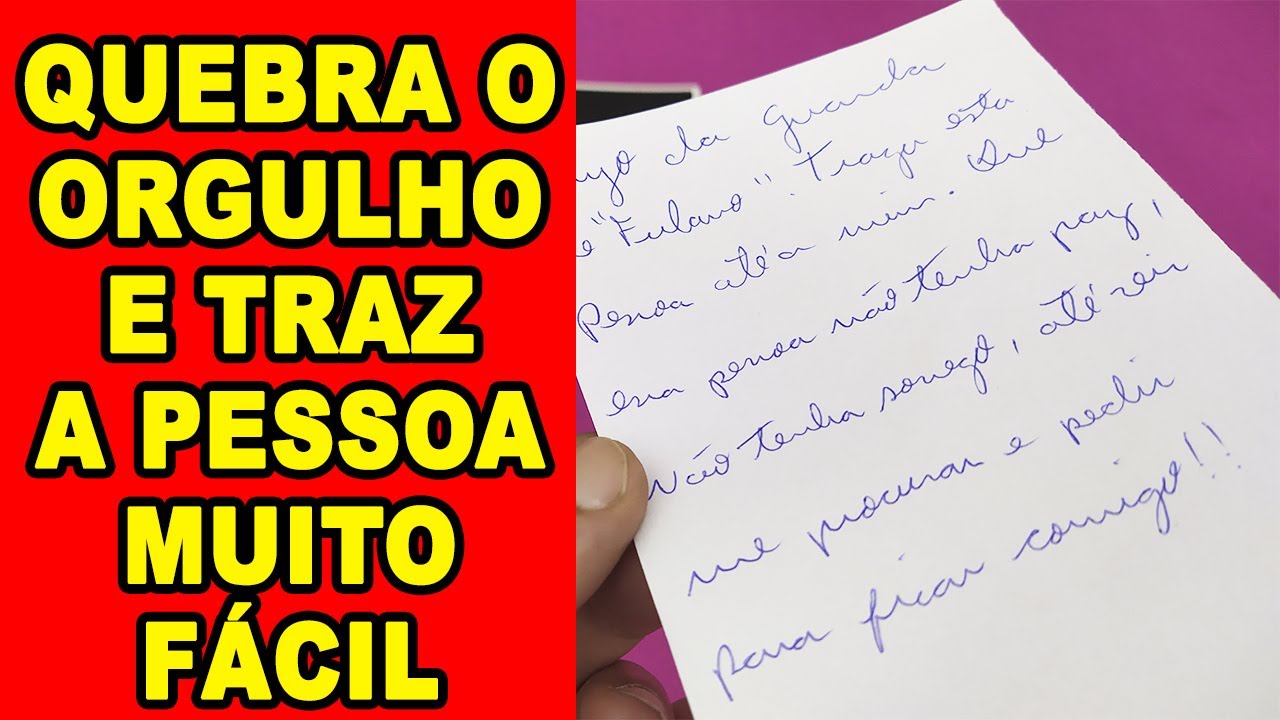 QUEBRA O
ORGULHO
E TRAZ
A PESSOA
MUITO
FÁCIL
da guarda
"Fulano". Traga esta
Pessoa até a mim. Que
essa pessoa não tenha paz,
Não tenha sossego, até vir
me procurar e pedir
para ficar comigo!!